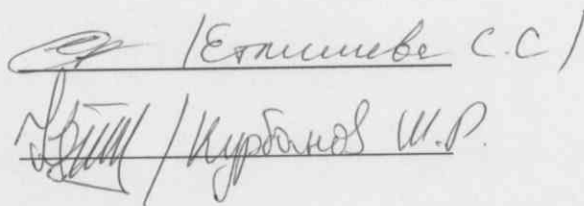 /Етмишева С.С/
/Курбанов Ш.Р.